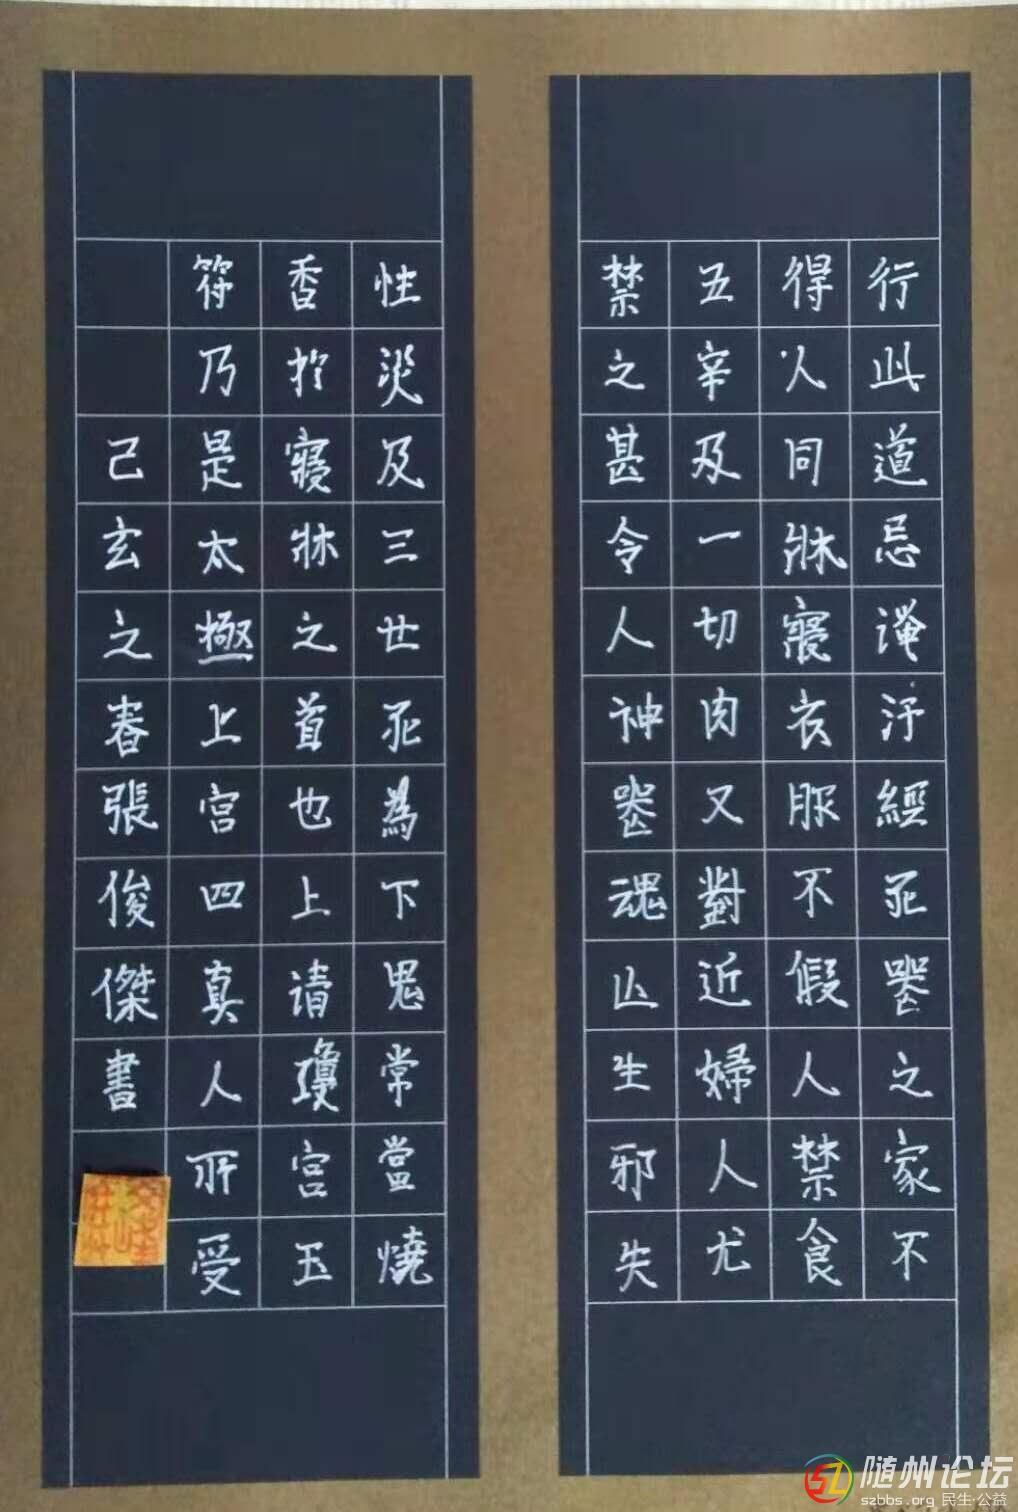 行此道忌淹汙經死喪之家不
得人同牀寢衣服不假人禁食
五辛及一切肉又對近婦人尤
禁之甚令人神喪魂亡生邪失
性災及三世死為下鬼常當燒
香於寢牀之首也上清瓊宮玉
符乃是太極上宮四真人所受
己亥之春張俊傑書
随州论坛
szbbs.org 民生·公益